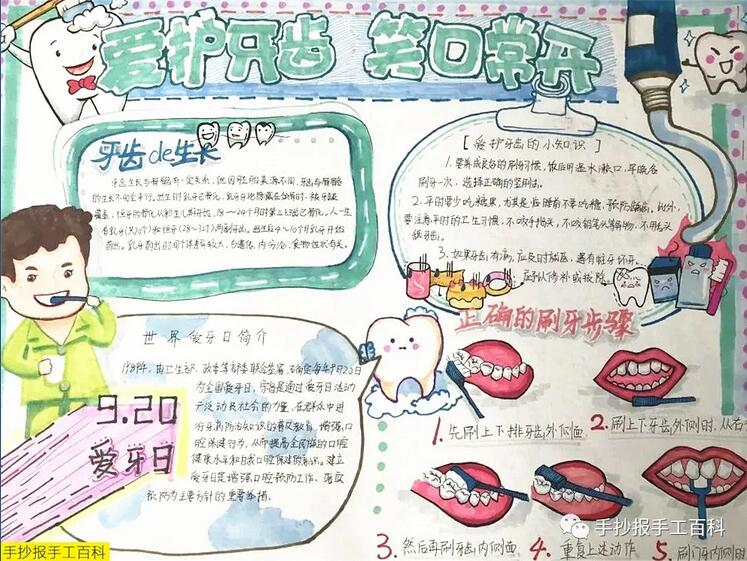 爱护牙齿 笑口常开
牙齿de生长
牙齿生长与骨骼有一定关系，但因胚胎来源不同，牙齿与骨骼
的生长不完全平行。出生时乳牙已骨化，乳牙牙胞隐藏在颌骨中，被牙龈
覆盖，恒牙的骨化从新生儿期开始，18～24个月时第三臼齿已骨化，人一生
有乳牙(共20个)和恒牙(28～32个)两副牙齿。出生后4～10个月乳牙开始
萌出。乳牙萌出时间个体差异较大，与遗传、内分泌、食物性状有关。
[爱护牙齿的小知识]
1.要养成良好的刷牙习惯，饭后用温水漱口，早晚各
刷牙一次，选择正确的竖刷法。
2.平时要少吃糖果，尤其是临睡前不要吃糖，预防龋齿。此外，
要注意平时的卫生习惯，不咬手指头，不咬铅笔头等异物，不用舌头
舐牙齿。
3.如果牙齿有病，应及时治医，遇有蛀牙坏牙，
应予以修补或拔除。
世界爱牙日简介
1989年，由卫生部、教委等部委联合签署，确定每年9月20日
为全国爱牙日，宗旨是通过爱牙日活动
广泛动员社会的力量，在群众中进
行牙病防治知识的普及教育，增强口
腔保健行为，从而提高全民族的口腔
健康水平和自我口腔保健的意识。建立
爱牙日是增强口腔预防工作，落实
预防为主要方针的重要举措。
9.20
爱牙日
正确的刷牙步骤
1.先刷上下排牙齿外侧面
2.刷上下牙齿外侧时，从右
3.然后再刷牙齿内侧面
4.重复上述动作
5.刷门牙内侧时
手抄报手工百科
手抄报手工百科